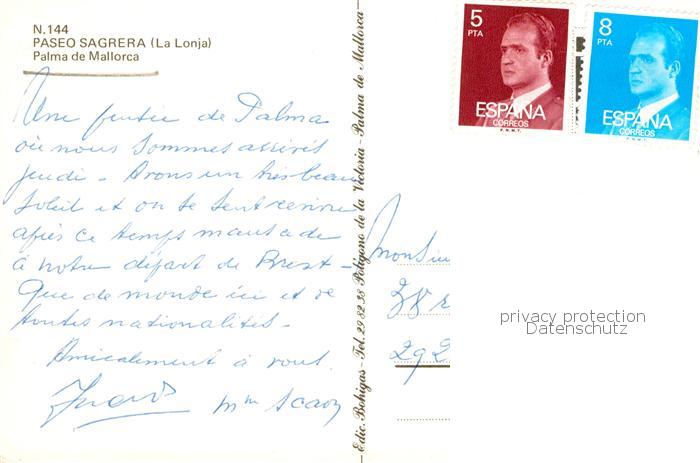 N.144
PASEO SAGRERA (La Lonja)
Palma de Mallorca
Une pensée de Palma
où nous sommes arrivés
jeudi - Avons un très beau
soleil et on se sent revivre
après ce temps maussade
à notre départ de Brest -
Que de monde ici et de
toutes nationalités -
Amicalement à vous.
Mme
Edic. Bohigas - Tel. 29 82 38 Polígono de la Victoria - Palma de Mallorca
5
PTA
ESPAÑA
CORREOS
F.N.M.T.
8
PTA
ESPAÑA
CORREOS
F.N.M.T.
Monsieu
38 r
292
privacy protection
Datenschutz